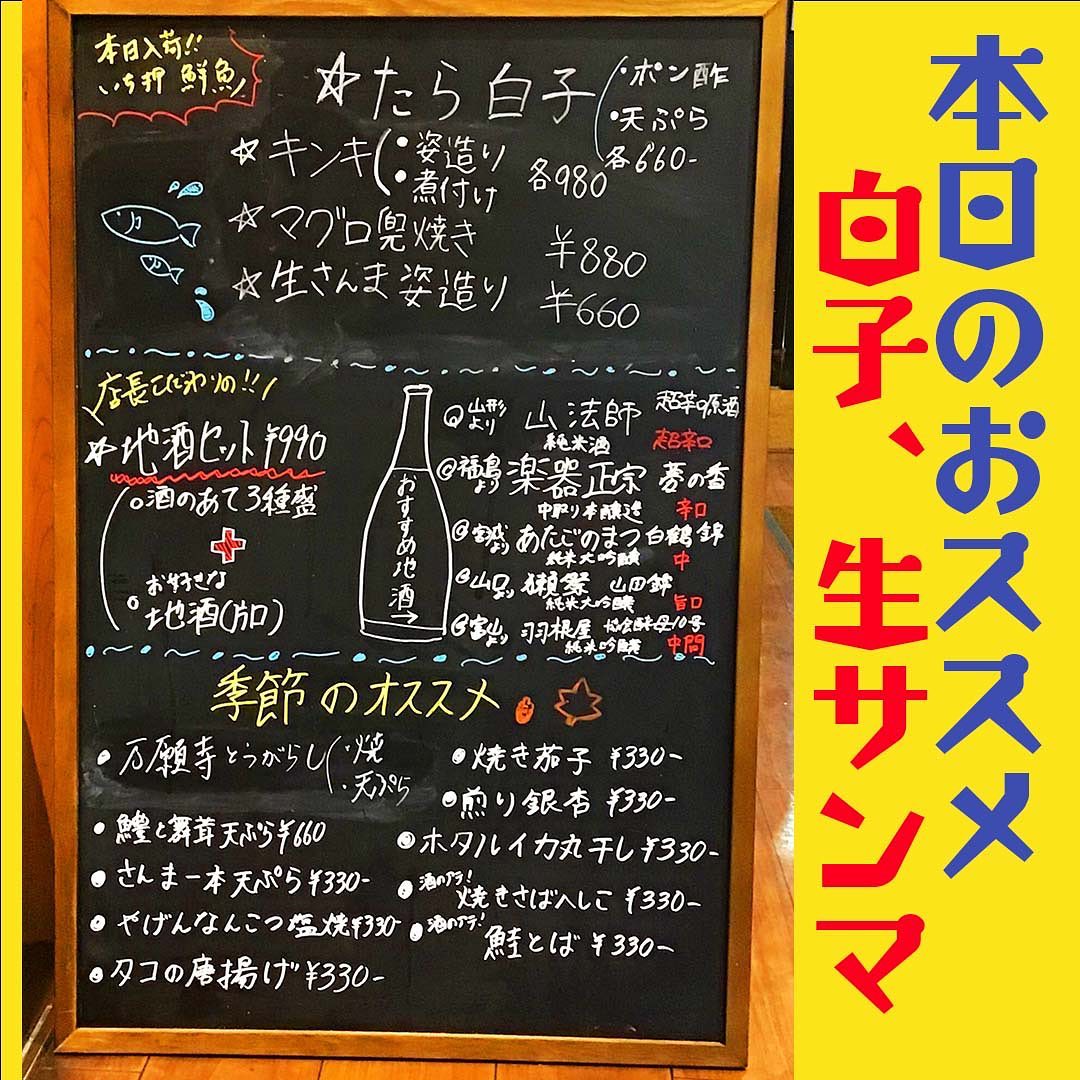 本日入荷!!
いち押 鮮魚
☆たら白子
・ポン酢
・天ぷら
各660-
☆キンキ
・姿造り
・煮付け
各980
☆マグロ兜焼き
¥880
☆生さんま姿造り
¥660
店長こだわりの!!
☆地酒セット¥990
○酒のあて3種盛
+
○お好きな
地酒(片口)
おすすめ地酒→
山形より 山法師 超辛口原酒
純米酒 超辛口
福島より 楽器正宗 夢の香
中取り本醸造 辛口
宮城より あたごのまつ 白鶴錦
純米大吟醸 中
山口より 獺祭 山田錦
純米大吟醸 旨口
富山より 羽根屋 協会酵母10号
純米吟醸 中間
季節のオススメ
・万願寺とうがらし
・焼
・天ぷら
・鱧と舞茸天ぷら¥660
・さんま一本天ぷら¥330-
・やげんなんこつ塩焼¥330-
・タコの唐揚げ¥330-
・焼き茄子 ¥330-
・煎り銀杏 ¥330-
・ホタルイカ丸干し¥330-
・酒のアテ!
焼きさばへしこ ¥330-
・酒のアテ!
鮭とば ¥330-
本日のおススメ
白子、生サンマ